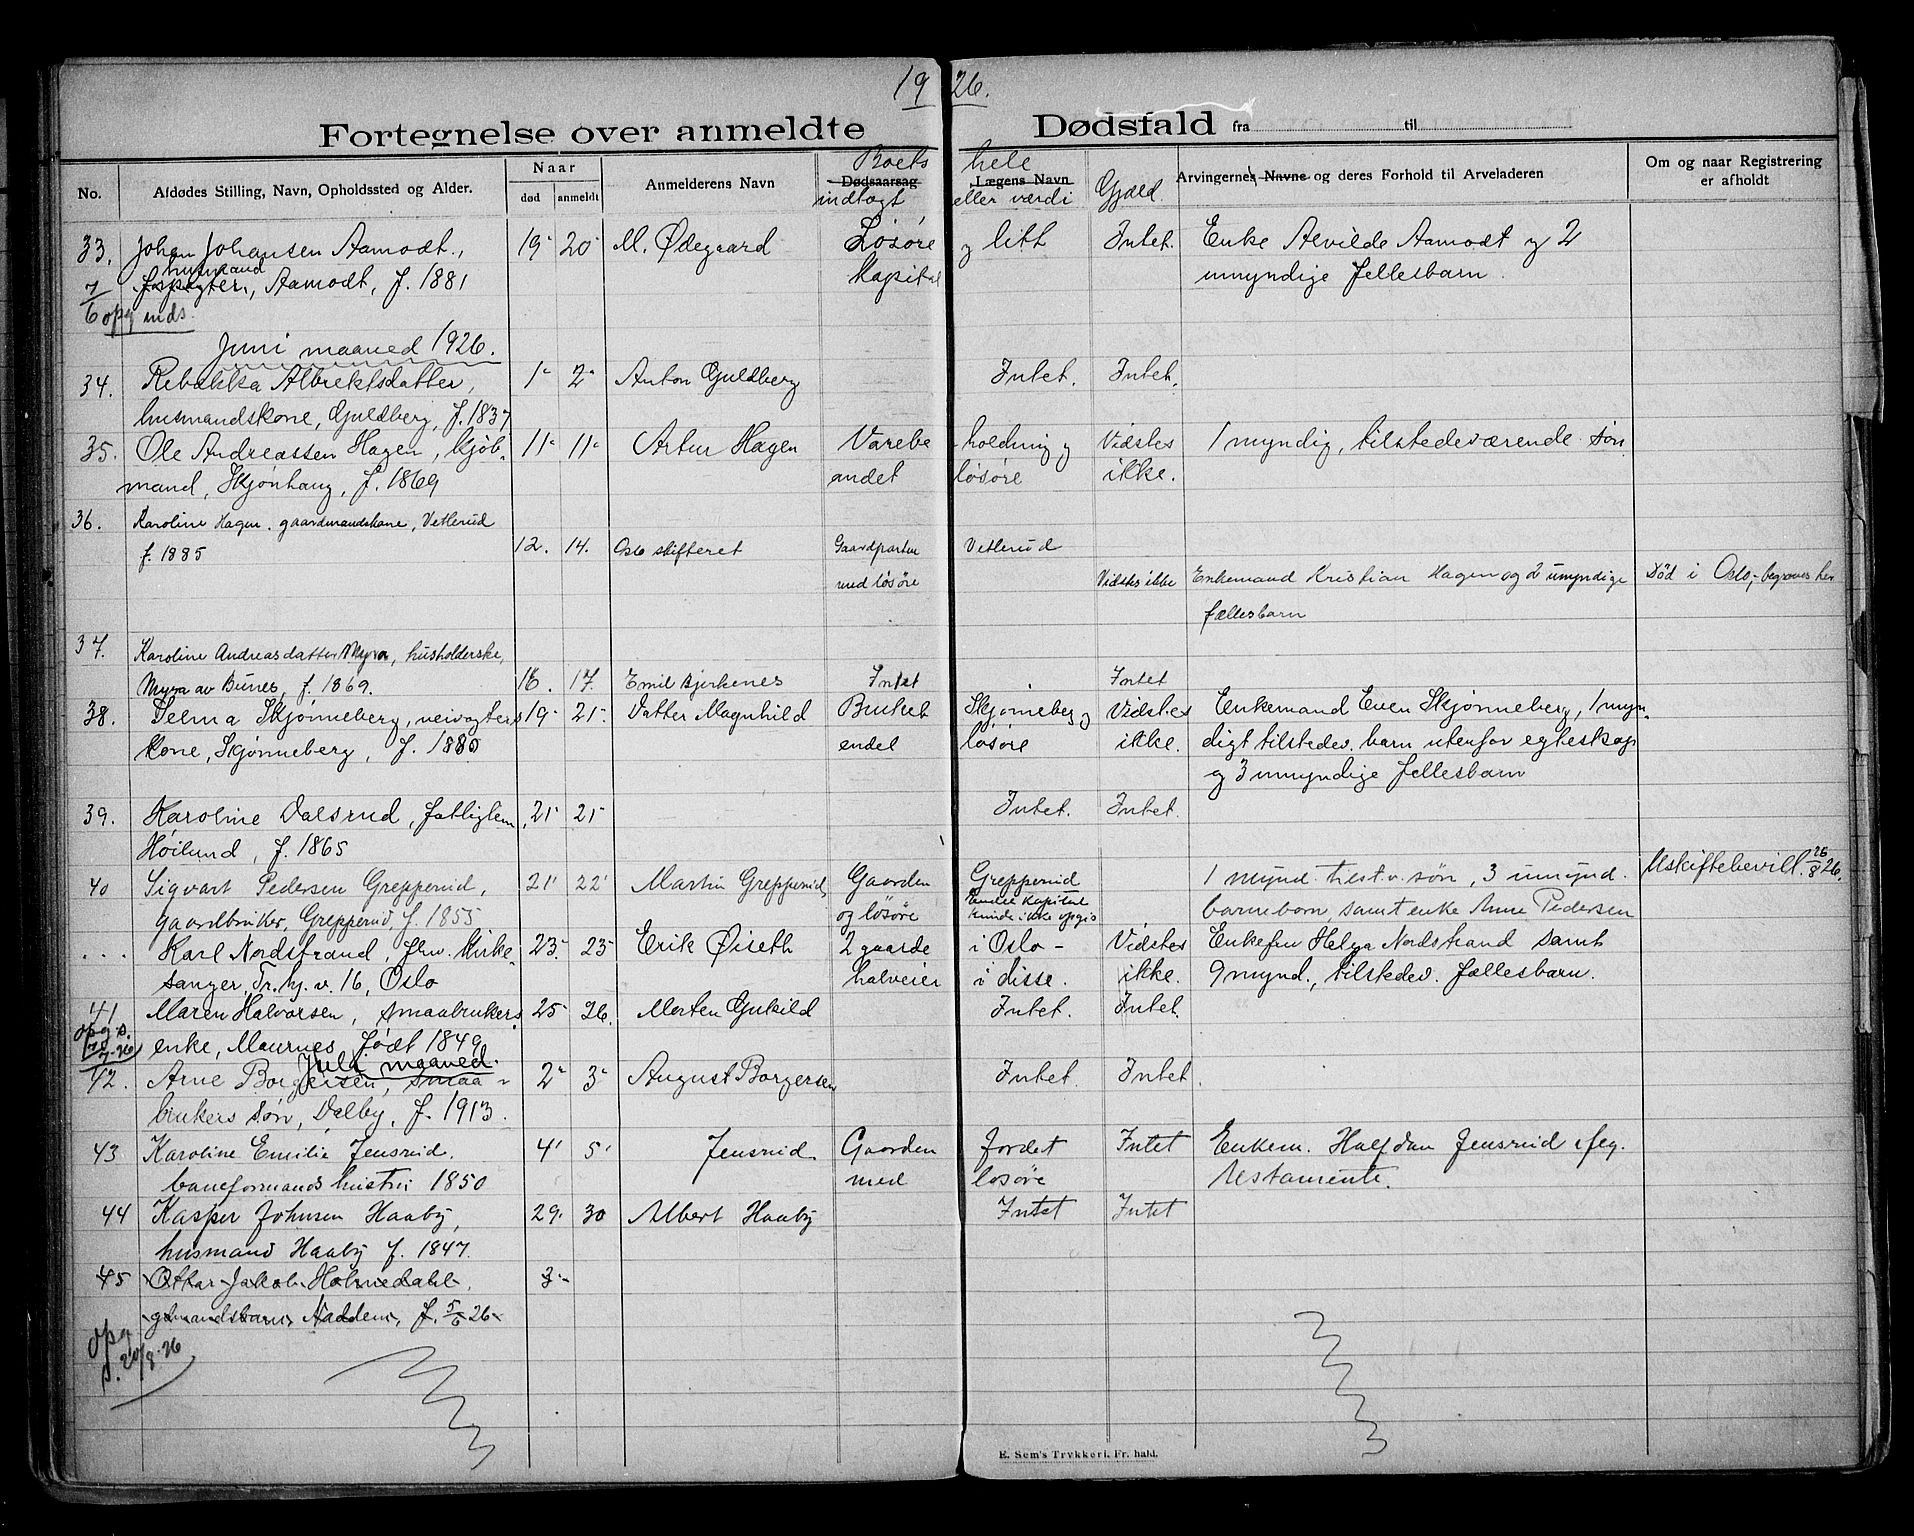 1926.
Fortegnelse over anmeldte Dødsfald fra til
No.
Afdødes Stilling, Navn, Opholdssted og Alder.
Naar
død anmeldt
Anmelderens Navn
Boets hele
Dødsaarsag Lægens Navn
indtægt eller værdi
Gjæld.
Arvingernes Navne og deres Forhold til Arveladeren
Om og naar Registrering er afholdt
33. Johan Johansen Aamodt, 19 20 M. Ødegaard Løsøre og litt Intet. Enke Alvilde Aamodt og 2
husmand
Aamodt, f. 1881 Kapital umyndige fellesbarn.
7/6 opg inds.
Juni maaned 1926.
34. Rebekka Albrektsdatter, 1 2 Anton Guldberg Intet. Intet.
husmandskone, Guldberg, f. 1837
35. Ole Andreassen Hagen, kjøb- 11 11 Artur Hagen Varebe holdning og Vidstes 1 myndig, tilstedeværende søn
mand, Skjønhaug, f. 1869 andet løsøre ikke.
36. Karoline Hagen. gaardmandskone, Vetlerud
f. 1885 12. 14. Oslo skifteret Gaardparten Vetlerud
med løsøre Vidstes ikke Enkemand Kristian Hagen og 2 umyndige Død i Oslo, begraves her
fællesbarn
37. Karoline Andreasdatter Myra, husholderske,
Myra av Bunes, f. 1869. 16. 17. Emil Bjerkenes Intet Intet
38. Selma Skjønneberg, veivogters 19 21 Datter Magnhild Bruket Skjønneberg og Vidstes Enkemand Even Skjønneberg, 1 myn-
kone, Skjønneberg, f. 1880 endel løsøre ikke. digt tilstedev. barn utenfor egteskap
og 3 umyndige fellesbarn
39. Karoline Dalsrud, fattiglem, 21 21 Intet. Intet.
Høilund, f. 1865
40 Sigvart Pedersen Grepperud, 21 22 Martin Grepperud, Gaarden Grepperud 1 mynd. tilst.v. søn, 3 umynd. Uskiftebevill. 26/8 26.
gaardbruker, Grepperud, f. 1855 og løsøre Andre kapital kunde ikke opgis barnebarn, samt enke Anne Pedersen
... Karl Nordstrand, fhv. kirke- 23 23 Erik Øiseth 2 gaarde i Oslo - Vidstes Enkefru Helga Nordstrand samt
sanger, Tr. hj. v. 16, Oslo halveier i disse. ikke. 9 mynd., tilstedev. fællesbarn.
41 Maren Halvorsen, smaabrukers 25 26. Morten Gukild Intet. Intet.
opg s.
7-26
enke, Maurnes, født 1849
Juli maaned.
42. Arne Borgersen, smaa- 2 3 August Borgersen Intet. Intet.
brukers søn, Dalby, f. 1913.
43 Karoline Emilie Jensrud. 4 5 Jensrud. Gaarden Jordet Intet Enkem. Halfdan Jensrud iføg.
baneformands hustru 1850 med løsøre testamente.
44 Kasper Johnsen Haaby, 29 30 Albert Haaby Intet Intet
husmand Haaby f. 1847.
45 Ottar Jakob Holmedahl 3
gmandsbarn, Nadden, f. 5/6 26
opg
s. 20/8-26
E. Sem's Trykkeri. Fr.hald.